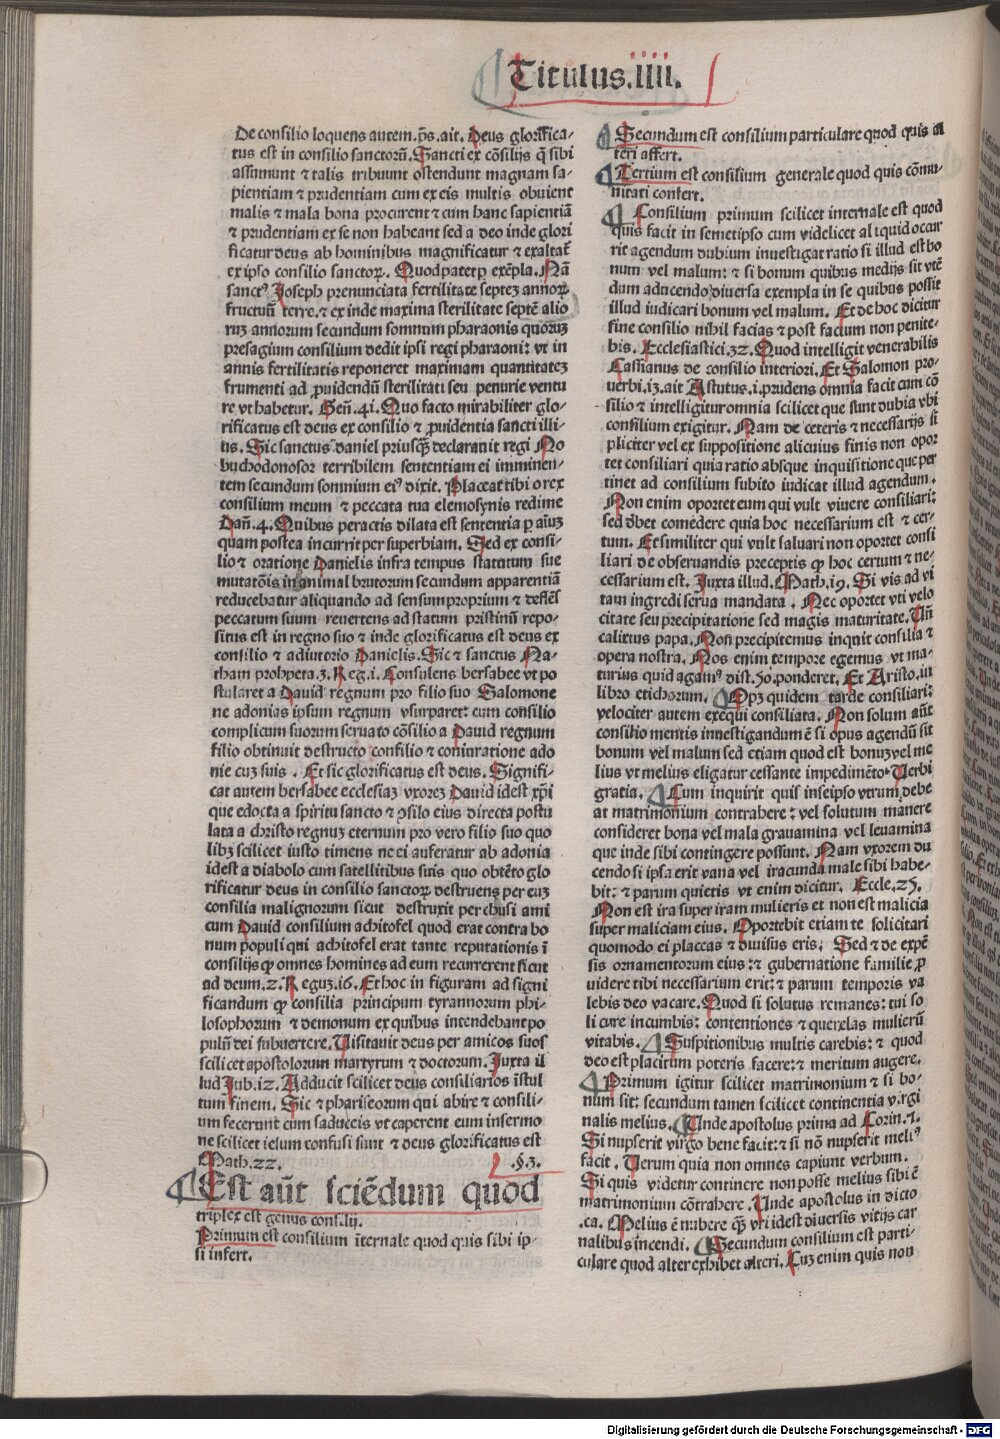 Titulus.IIII.
De consilio loquens autem.p̄s.ait. Deus glorifica-
tus est in consilio sanctorū. Sancti ex cōsilijs q̄ sibi
assumunt ⁊ talis tribuunt ostendunt magnam sa-
pientiam ⁊ prudentiam cum ex eis multis obuient
malis ⁊ mala bona procurent ⁊ cum hanc sapientiā
⁊ prudentiam ex se non habeant sed a deo inde glori
ficatur deus ab hominibus magnificatur ⁊ exaltat̄
ex ipso consilio sanctoꝝ. Quod patet ꝑ exēpla. Nā
sanctꝰ Joseph prenunciata fertilitate septez annoꝝ
fructuū terre.⁊ ex inde maxima sterilitate septē alio
ruz annorum secundum somnum pharaonis quoruz
presagium consilium dedit ipsi regi pharaoni: vt in
annis fertilitatis reponeret maximam quantitatez
frumenti ad ꝓuidendū sterilitati seu penurie ventu
re vt habetur. Geñ.41. Quo facto mirabiliter glo-
rificatus est deus ex consilio ⁊ ꝓuidentia sancti illi-
us. Sic sanctus daniel priusq̄ʒ declarauit regi No
buchodonosor terribilem sententiam ei imminen-
tem secundum somnium eiꝰ dixit. Placeat tibi o rex
consilium meum ⁊ peccata tua elemosynis redime
Dañ.4. Quibus peractis dilata est sententia ꝑ aiuz
quam postea incurrit per superbiam. Sed ex consi-
lio ⁊ oratione Danielis infra tempus statutum sue
mutatōis in animal brutorum secundum apparentiā
reducebatur aliquando ad sensum proprium ⁊ deflēs
peccatum suum reuertens ad statum pristinū repo-
situs est in regno suo ⁊ inde glorificatus est deus ex
consilio ⁊ adiutorio Danielis. Sic ⁊ sanctus Na-
tham prohpeta.3. Reg.i. Consulens bersabee vt po
stularet a Dauid regnum pro filio suo Salomone
ne adonias ipsum regnum vsurparet: cum consilio
complicum suorum seruato cōsilio a Dauid regnum
filio obtinuit destructo consilio ⁊ coniuratione ado
nie cuz suis . Et sic glorificatus est deus. Signifi-
cat autem bersabee ecclesiaz vxorez Dauid idest xp̄i
que edocta a spiritu sancto ⁊ ↄsilo eius directa postu
lata a christo regnuz eternum pro vero filio suo quo
libz scilicet iusto timens ne ei auferatur ab adonia
idest a diabolo cum satellitibus suis quo obtēto glo
rificatur deus in consilio sanctoꝝ destruens per euz
consilia malignorum sicut destruxit per chusi ami
cum Dauid consilium achitofel quod erat contra bo
num populi qui achitofel erat tante reputationis ī
consilijs ꝙ omnes homines ad eum recurrerent sicut
ad deum.2. Reguz.16. Et hoc in figuram ad signi
ficandum ꝙ consilia principum tyrannorum phi-
losophorum ⁊ demonum ex quibus intendebant po
pulū dei subuertere. Uisitauit deus per amicos suos
scilicet apostolorum martyrum ⁊ doctorum. Juxta il
lud Jub.12. Adducit scilicet deus consiliarios īstul
tum finem. Sic ⁊ phariseorum qui abire ⁊ consili-
um fecerunt cum saduceis vt caperent eum in sermo
ne scilicet iesum confusi sunt ⁊ deus glorificatus est
Math.22. .§.3.
Est aūt sciēdum quod
triplex est genus consilij.
Primum est consilium īternale quod quis sibi ip-
si infert.
Secundum est consilium particulare quod quis al
teri affert.
Tertium est consilium generale quod quis cōmu-
nitati confert.
Consilium primum scilicet internale est quod
quis facit in semetipso cum videlicet aliquid occur
rit agendum dubium inuestigat ratio si illud est bo
num vel malum: ⁊ si bonum quibus medijs sit vtē
dum aducendo diuersa exempla in se quibus possit
illud iudicari bonum vel malum. Et de hoc dicitur
sine consilio nihil facias ⁊ post factum non penite-
bis. Ecclesiastici.32. Quod intelligit venerabilis
Cassianus de consilio interiori. Et Salomon pro-
uerbi.13.ait Astutus.i.prudens omnia facit cum cō
silio ⁊ intelligitur omnia scilicet que sunt dubia vbi
consilium exigitur. Nam de ceteris ⁊ necessarijs si
pliciter vel ex suppositione alicuius finis non opor
tet consiliari quia ratio absque inquisitione que per
tinet ad consilium subito iudicat illud agendum.
Non enim oportet eum qui vult viuere consiliari:
sed dʒbet comedere quia hoc necessarium est ⁊ cer-
tum. Et similiter qui vult saluari non oportet consi
liari de obseruandis preceptis ꝙ hoc certum ⁊ ne-
cessarium est. Juxta illud. Math.19. Si vis ad vi
tam ingredi serua mandata . Nec oportet vti velo
citate seu precipitatione sed magis maturitate. Uñ
calittus papa. Non precipitemus inquit consilia ⁊
opera nostra. Nos enim tempore egemus vt ma-
turius quid agamꝰ dist.50.ponderet. Et Aristo.in
libro etichorum. Opꝫ quidem tarde consiliari:
velociter autem exequi consiliata. Non solum aūt
consilio mentis inuestigandum ē si opus agendū sit
bonum vel malum sed etiam quod est bonuz vel me
lius vt melius eligatur cessante impedimēto. Uerbi
gratia. Cum inquirit quis in seipso vtrum debe
at matrimonium contrahere: vel solutum manere
consideret bona vel mala grauamina vel leuamina
que inde sibi contingere possunt. Nam vxorem du
cendo si ipsa erit vana vel iracunda male sibi habe-
bit: ⁊ parum quietis vt enim dicitur. Eccle.25.
Non est ira super iram mulieris et non est malicia
super maliciam eius. Oportebit etiam te solicitari
quomodo ei placeas ⁊ diuisus eris. Sed ⁊ de expē
sis ornamentorum eius:⁊ gubernatione familie ꝓ
uidere tibi necessarium erit:⁊ parum temporis va
lebis deo vacare. Quod si solutus remanes: tui so
li cure incumbis: contentiones ⁊ querelas mulierū
vitabis. Suspitionibus multis carebis: ⁊ quod
deo est placitum poteris facere:⁊ meritum augere.
Primum igitur scilicet matrimonium ⁊ si bo-
num sit: secundum tamen scilicet continentia virgi
nalis melius. Unde apostolus prima ad Corin.7.
Si nupserit virgo bene facit:⁊ si nō nupserit meliꝰ
facit. Uerum quia non omnes capiunt verbum.
Si quis videtur continere non posse melius sibi ē
matrimonium cōtrahere. Unde apostolus in dicto
.ca. Melius ē nubere q̄ʒ vri idest diuersis vitijs car
nalibus incendi. Secundum consilium est parti-
culare quod alter exhibet alteri. Cuz enim quis non
Digitalisierung gefördert durch die Deutsche Forschungsgemeinschaft - DFG